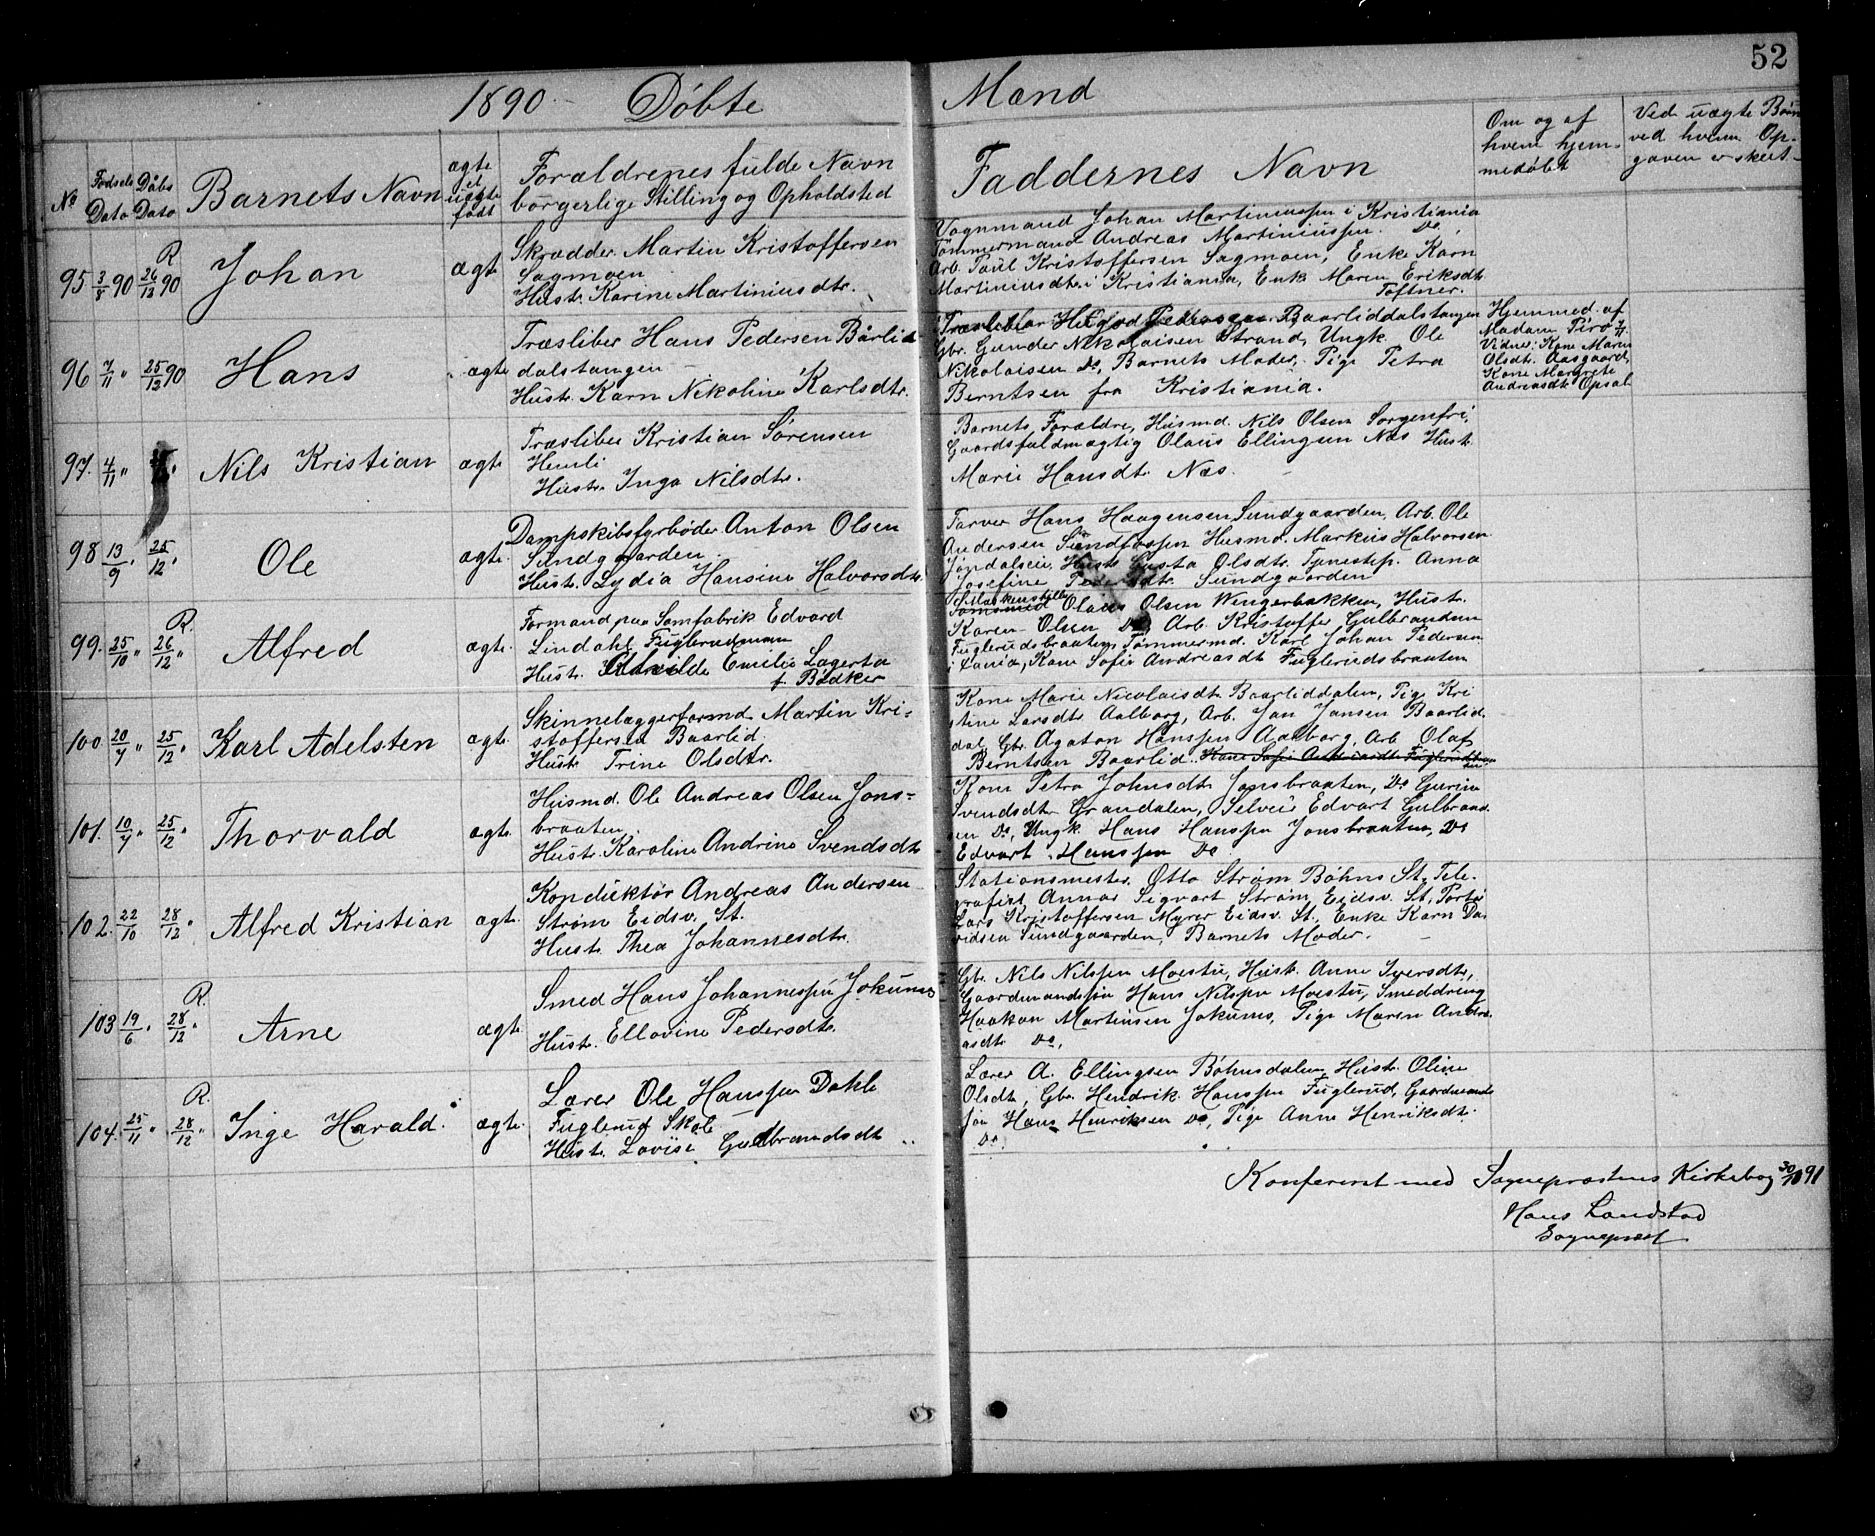 52
1890 Døbte Mænd
No
Fødsels Dato
Dåbs Dato
Barnets Navn
ægte el uægte født
Forældrenes fulde Navn
borgerlige Stilling og Opholdsted
Faddernes Navn
Om og af
hvem hjem-
medøbt
Ved uægte Børn
ved hvem Op-
gaven er skeet
95 3/8 90 R. 26/12 90 Johan ægte
Skrædder Martin Kristoffersen
Sagmoen
Hustr. Karine Martiniusdtr.
Vognmand Johan Martiniussen i Kristiania
Tømmermand Andreas Martiniussen Do.,
Arb. Paul Kristoffersen Sagmoen, Enke Karn
Martiniusdtr. i Kristiania, Enk. Maren Eriksdt.
Toftner.
96 7/11 " 25/12 90 Hans ægte
Træsliber Hans Pedersen Bårlid
dalstangen
Hustr. Karn Nikoline Karlsdtr.
Pedersen Baarliddalstangen
Gbr. Gunder Nikolaisen Strand, Ungk. Ole
Nikolaisen Do, Barnets Moder, Pige Petra
Berntsen fra Kristiania.
Hjemmed. af
Madam Piro 7/11
Vidner: Kone Maren
Olsdt. Aasgaard,
Kone Margrete
Andreasdt. Opsal
97. 4/11 " Nils Kristian ægte
Træsliber Kristian Sørensen
Hemli
Hustr. Inga Nilsdtr.
Barnets Forældre, Husmd. Nils Olsen Sorgenfri,
Gaardsfuldmægtig Olaus Ellingsen Næs Hust.
Marie Hansdt. Næs.
98 13/9 25/12 " Ole ægte.
Dampskibsfyrbøder Anton Olsen
Sundgaarden.
Hustr. Lydia Hansine Halvorsdtr.
Farver Hans Haagensen Sundgaarden, Arb. Ole
Andersen Husmd. Markus Halvorsen
Jøndalseie, Hustr. Gusta Olsdtr. Tjenestep. Anna
Josefine Pedersdtr. Sundgaarden
99. 25/10 " R. 26/12 " Alfred ægte.
Formand paa Sæmfabrik Edvard
Lindahl, Fuglerudmoen
Hustr. Emilie Lagerta
f. Bødker
Olaus Olsen Wingerbakken, Hustr.
Karen Olsen Do, Arb. Kristoffer Gulbrandsen
Fugleruds braaten, Tømmermd. Karl Johan Pedersen
Kone Sofie Andreasdt. Fuglerudsbraaten
100 20/7 " 25/12 " Karl Adelsten ægte.
Skinnelæggerformd. Martin Kri-
stoffersen Baarlid.
Hustr. Trine Olsdtr.
Kone Marie Nicolaisdt. Baarliddalen, Pige Kri
stine Larsdtr. Aalborg, Arb. Jan Jansen Baarlid
dal, Gbr. Agaton Hanssen Aalborg, Arb. Olaf
Berntsen Baarlid. Kone Sofie Andreasdt. Fuglerudbraa
ten
101. 10/7 " 25/12 " Thorvald ægte.
Husmd. Ole Andreas Olsen Jons-
braaten.
Hustr. Karoline Andrine Svendsdtr
Kone Petra Johnsdt. Jonsbraaten, Do Gurine
Svendsdtr. Grandalen, Selveier Edvart Gulbrand
sen Do, Ungk. Hans Hanssen Jonsbraaten, Do
Edvart Hanssen Do.
102. 22/10 28/12 " Alfred Kristian ægte.
Konduktør Andreas Andersen
Strøm Eidsv. St.
Hustr. Thea Johannesdtr.
Stationsmester Otto Strøm Bøhns St., Tele-
grafist Annar Sigvart Strøm, Eidsv. St., Portør
Lars Kristoffersen Myrer Eidsv. St., Enke Karn Da-
vidsen Sundgaarden, Barnets Moder.
103 19/6 " R. 28/12 " Arne ægte
Smed Hans Johannessen Jokums
Hustr. Ellovine Pedersdtr.
Gbr. Nils Nilssen Moestu, Hustr. Anne Iversdtr.,
Gaardmandssøn Hans Nilssen Moestu, Smeddreng
Haakon Martinsen Jokums, Pige Maren Andre
asdtr. Do.
104. 25/11 " R. 28/12 " Inge Harald. ægte.
Lærer Ole Hanssen Dahle
Fuglerud Skole
Hustr. Lovise Guldbrandsdt.
Lærer A. Ellingsen Bøhnsdalen, Hustr. Oline
Olsdt, Gbr. Hendrik Hanssen Fuglerud, Gaardmands
søn Hans Henriksen Do, Pige Anne Henriksdt.
Do.
Konfereret med Sognepræstens Kirkebog 30/10 91
Hans Landstad
Sognepræst